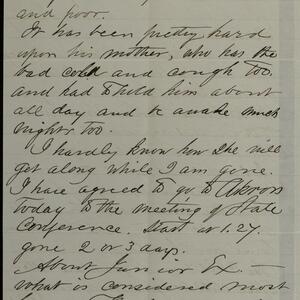 and poor.
It has been pretty hard
upon his mother, who has the
bad cold and cough too.
and had to hold him about
all day and be awake much
nights too.
I hardly know how she will
get along while I am gone.
I have agreed to go to Akron
today to the meeting of State
Conference. Start at 1.27.
gone 2 or 3 days.
About Junior Ex—
what is considered most